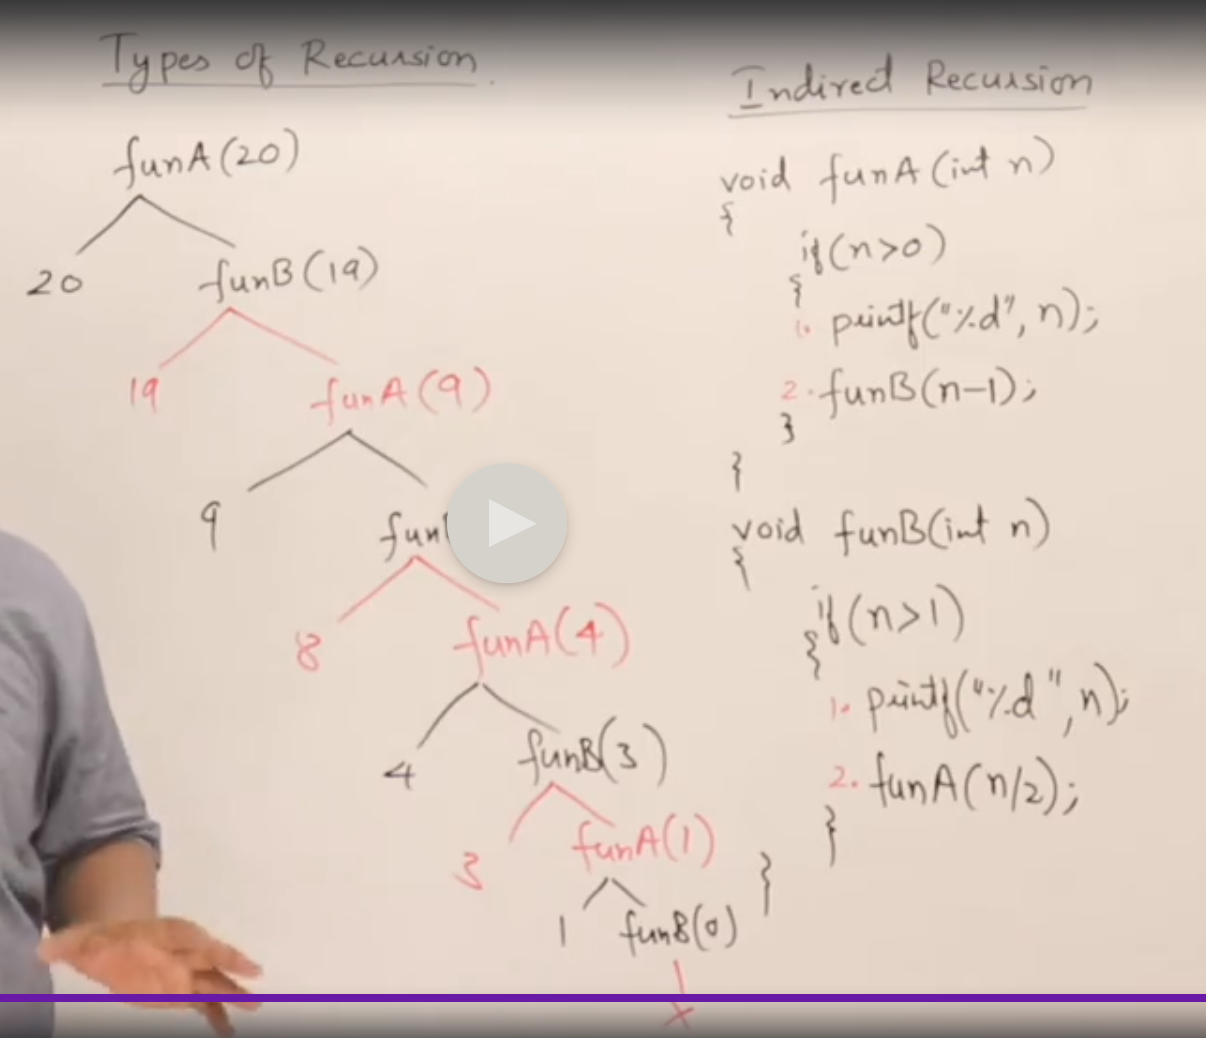 Types of Recursion
funA(20)
20 funB(19)
19 funA(9)
9
8 funA(4)
4 funB(3)
3 funA(1)
1 funB(0)
x
Indirect Recursion
void funA(int n)
{
if(n>0)
{
1. printf("%d", n);
2. funB(n-1);
}
}
void funB(int n)
{
if(n>1)
{
1. printf("%d", n);
2. funA(n/2);
}
}